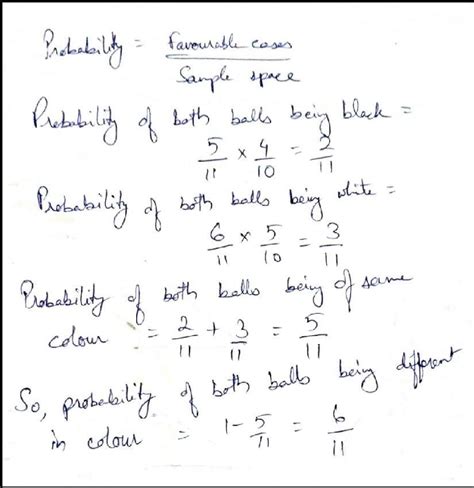 Probability = Favourable cases
Sample space
Probability of both balls being black =
5/11 × 4/10 = 2/11
Probability of both balls being white =
6/11 × 5/10 = 3/11
Probability of both balls being of same
colour = 2/11 + 3/11 = 5/11
So, probability of both balls being different
in colour = 1 - 5/11 = 6/11